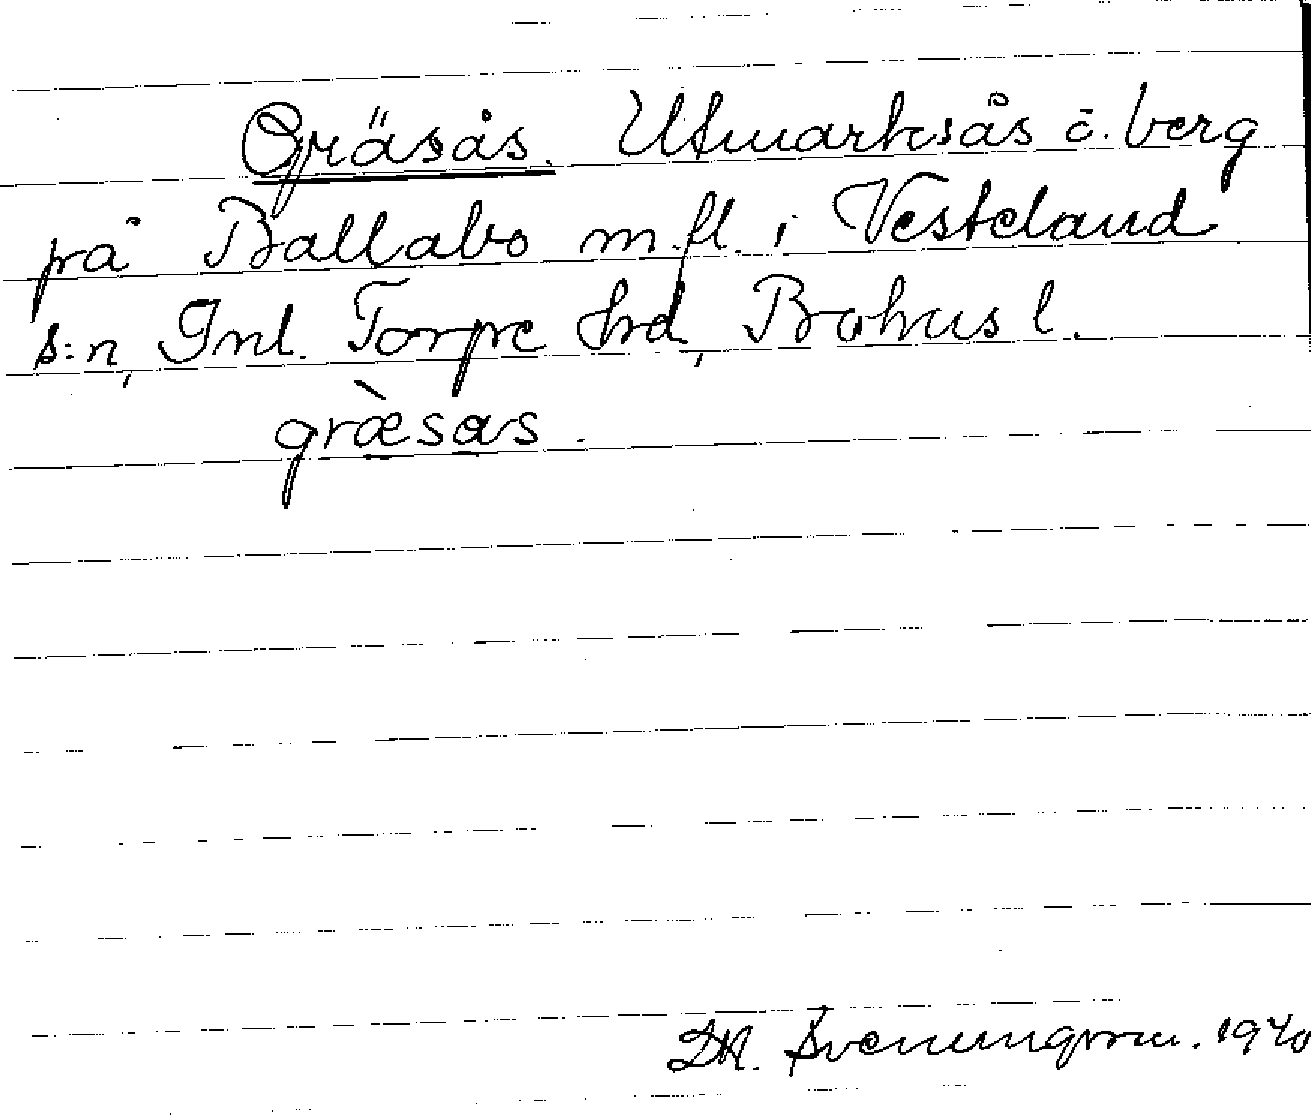 Gräsås. Utmarksås o. berg
på Ballabo m.fl. i Vesteland
s:n, Inl. Torpe hrd, Bohus l.
græ̀sɑs.
Svenungsson. 1940